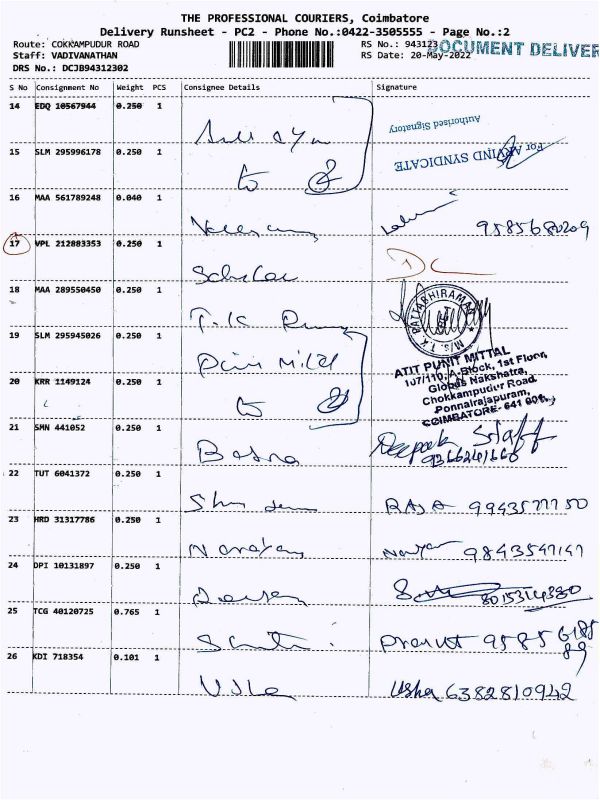 THE PROFESSIONAL COURIERS, Coimbatore
Delivery Runsheet - PC2 - Phone No.:0422-3505555 - Page No.:2
Route: COKKAMPUDUR ROAD RS No.: 943123 DOCUMENT DELIVER
Staff: VADIVANATHAN RS Date: 20-May-2022
DRS No.: DCJB94312302
S No Consignment No Weight PCS Consignee Details Signature
14 EDQ 10567944 0.250 1
Authorised Signatory
15 SLM 295996178 0.250 1
For ARVIND SYNDICATE
to
16 MAA 561789248 0.040 1
9585680209
17 VPL 212883353 0.250 1
18 MAA 289550450 0.250 1
M/S. T.K PATTABHIRAMAN
T.K
19 SLM 295945026 0.250 1
ATIT PUNIT MITTAL
107/110, A-Block, 1st Floor,
Globus Nakshatra,
20 KRR 1149124 0.250 1
Chokkampudur Road
Ponnairajapuram,
to
COIMBATORE- 641 001.
21 SMN 441052 0.250 1
Deepak Staff
22 TUT 6041372 0.250 1
RAJA
23 HRD 31317786 0.250 1
Narayan 9843547147
24 DPI 10131897 0.250 1
8015314380
25 TCG 40120725 0.765 1
26 KDI 718354 0.101 1
Usha Usha 6382810942